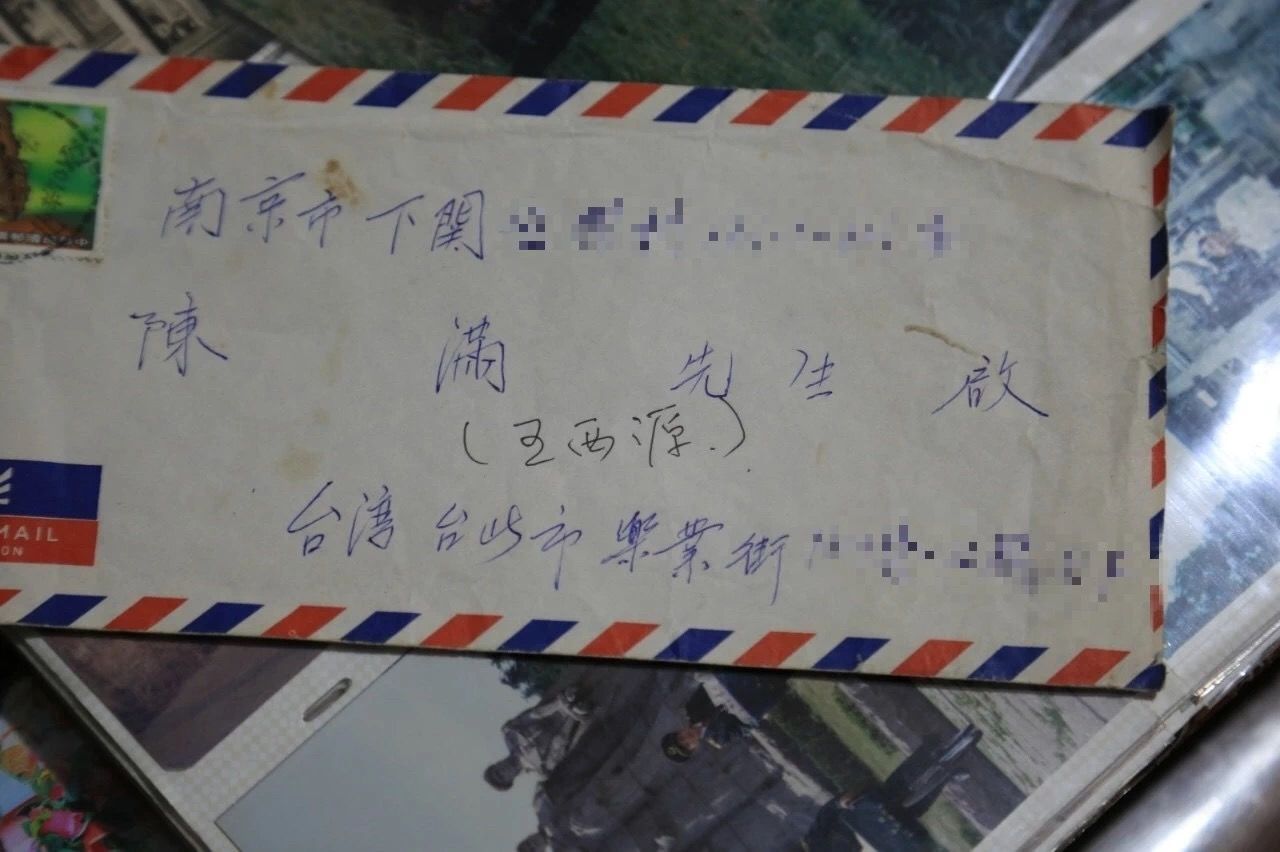 南京市下関
陳 滿 先生 啟
(王西源.)
台湾台北市樂業街
MAIL
ON